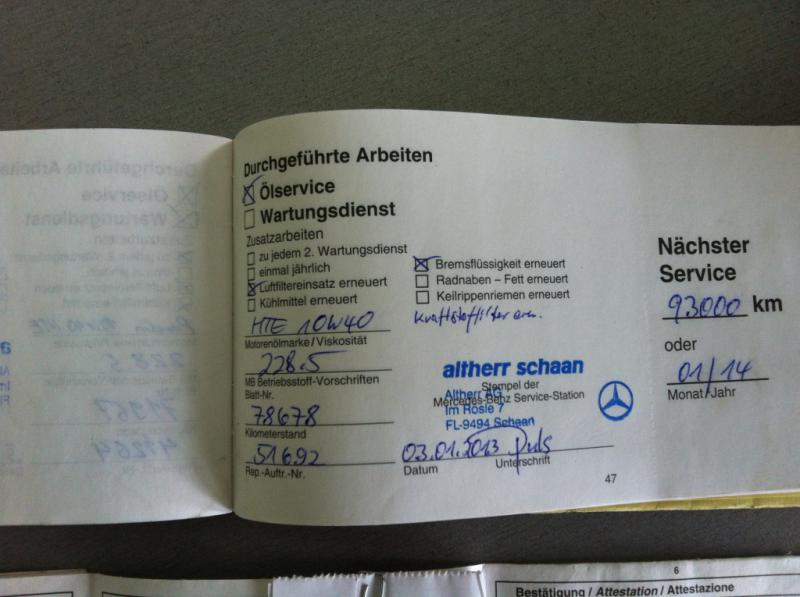 Durchgeführte Arbeiten
Ölservice
Wartungsdienst
Zusatzarbeiten
zu jedem 2. Wartungsdienst
einmal jährlich
Luftfiltereinsatz erneuert
Kühlmittel erneuert
HTE 10W40
Motorenölmarke/Viskosität
228.5
MB Betriebsstoff-Vorschriften
Blatt-Nr.
78678
Kilometerstand
51692
Rep.-Auftr.-Nr.
Bremsflüssigkeit erneuert
Radnaben – Fett erneuert
Keilrippenriemen erneuert
Kraftstoffilter ern.
altherr schaan
Stempel der
Altherr AG
Mercedes-Benz Service-Station
Im Rösle 7
FL-9494 Schaan
03.01.2013
Datum
Unterschrift
47
Nächster
Service
93000 km
oder
01/14
Monat/Jahr
Durchgeführte Arbeite
Ölservice
Wartungsdienst
228.5
6
Bestätigung / Attestation / Attestazione